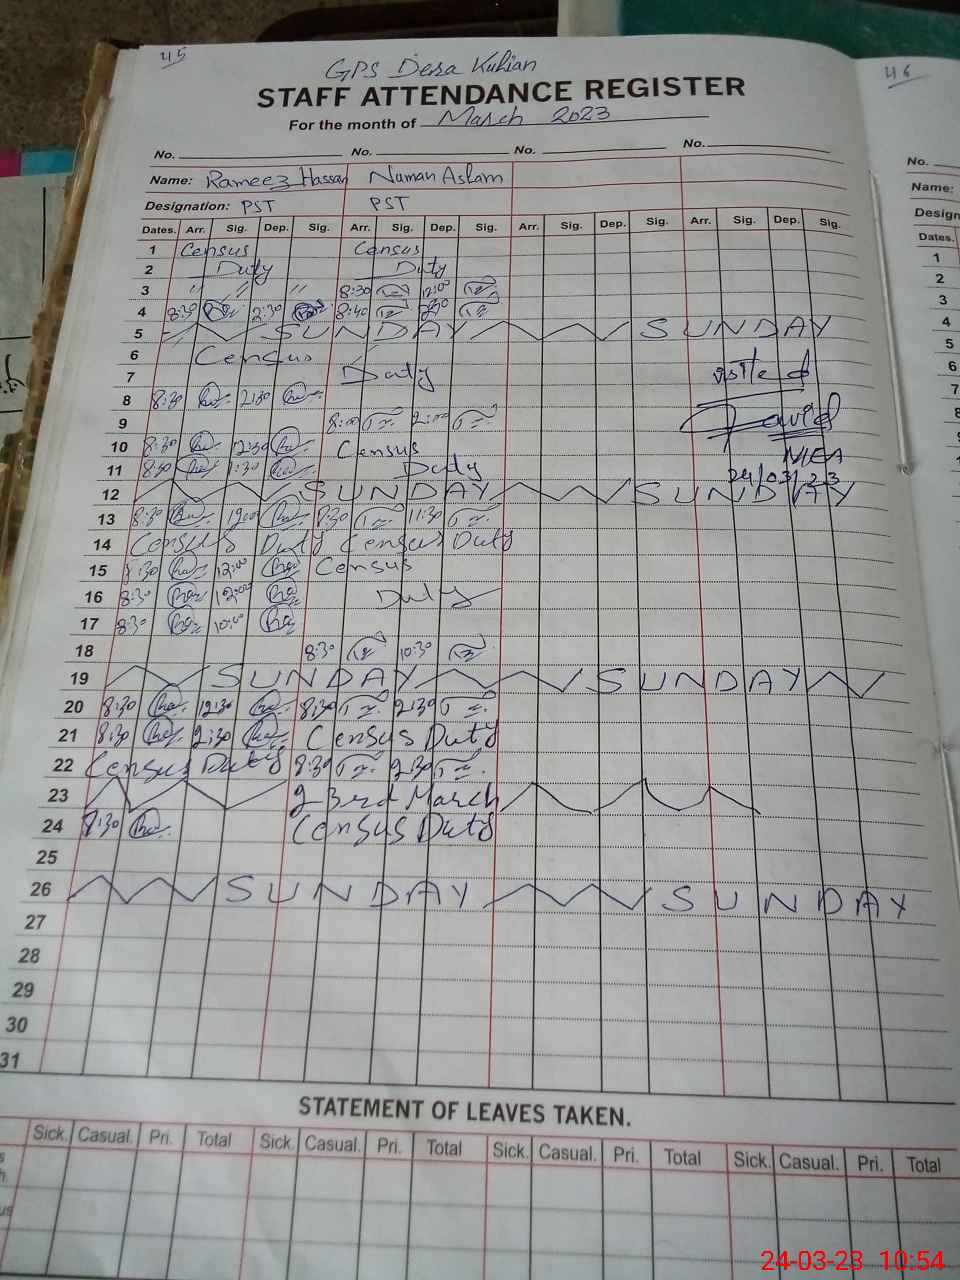 45
46
GPS Dera Kuhian
STAFF ATTENDANCE REGISTER
For the month of March 2023
No. No. No. No.
No.
Name: Rameez Hassan Numan Aslam
Name:
Designation: PST PST
Design
Dates. Arr. Sig. Dep. Sig. Arr. Sig. Dep. Sig. Arr. Sig. Dep. Sig. Arr. Sig. Dep. Sig.
Dates.
1 Census Census
2 Duty Duty
3 " " " 8:30 12:00
4 8:30 2:30 8:40
5 SUNDAY SUNDAY
6 Census
7 Duty
visited
8 8:30 2:30
9 8:00 2:00
10 8:30 12:30 Census
MEA
11 8:30 1:30 Duty
24/03/23
12 SUNDAY SUNDAY
13 8:30 12:00 8:30 11:30
14 Census Duty Census Duty
15 8:30 12:00 Census
16 8:30 12:00 Duty
17 8:30 10:40
18 8:30 10:30
19 SUNDAY SUNDAY
20 8:30 12:30 8:30 2:30
21 8:30 2:30 Census Duty
22 Census Duty 8:30 2:30
23 23rd March
24 8:30 Census Duty
25
26 SUNDAY SUNDAY
27
28
29
30
31
1
2
3
4
5
6
7
8
STATEMENT OF LEAVES TAKEN.
Sick. Casual. Pri. Total Sick. Casual. Pri. Total Sick. Casual. Pri. Total Sick. Casual. Pri. Total
24-03-23 10:54